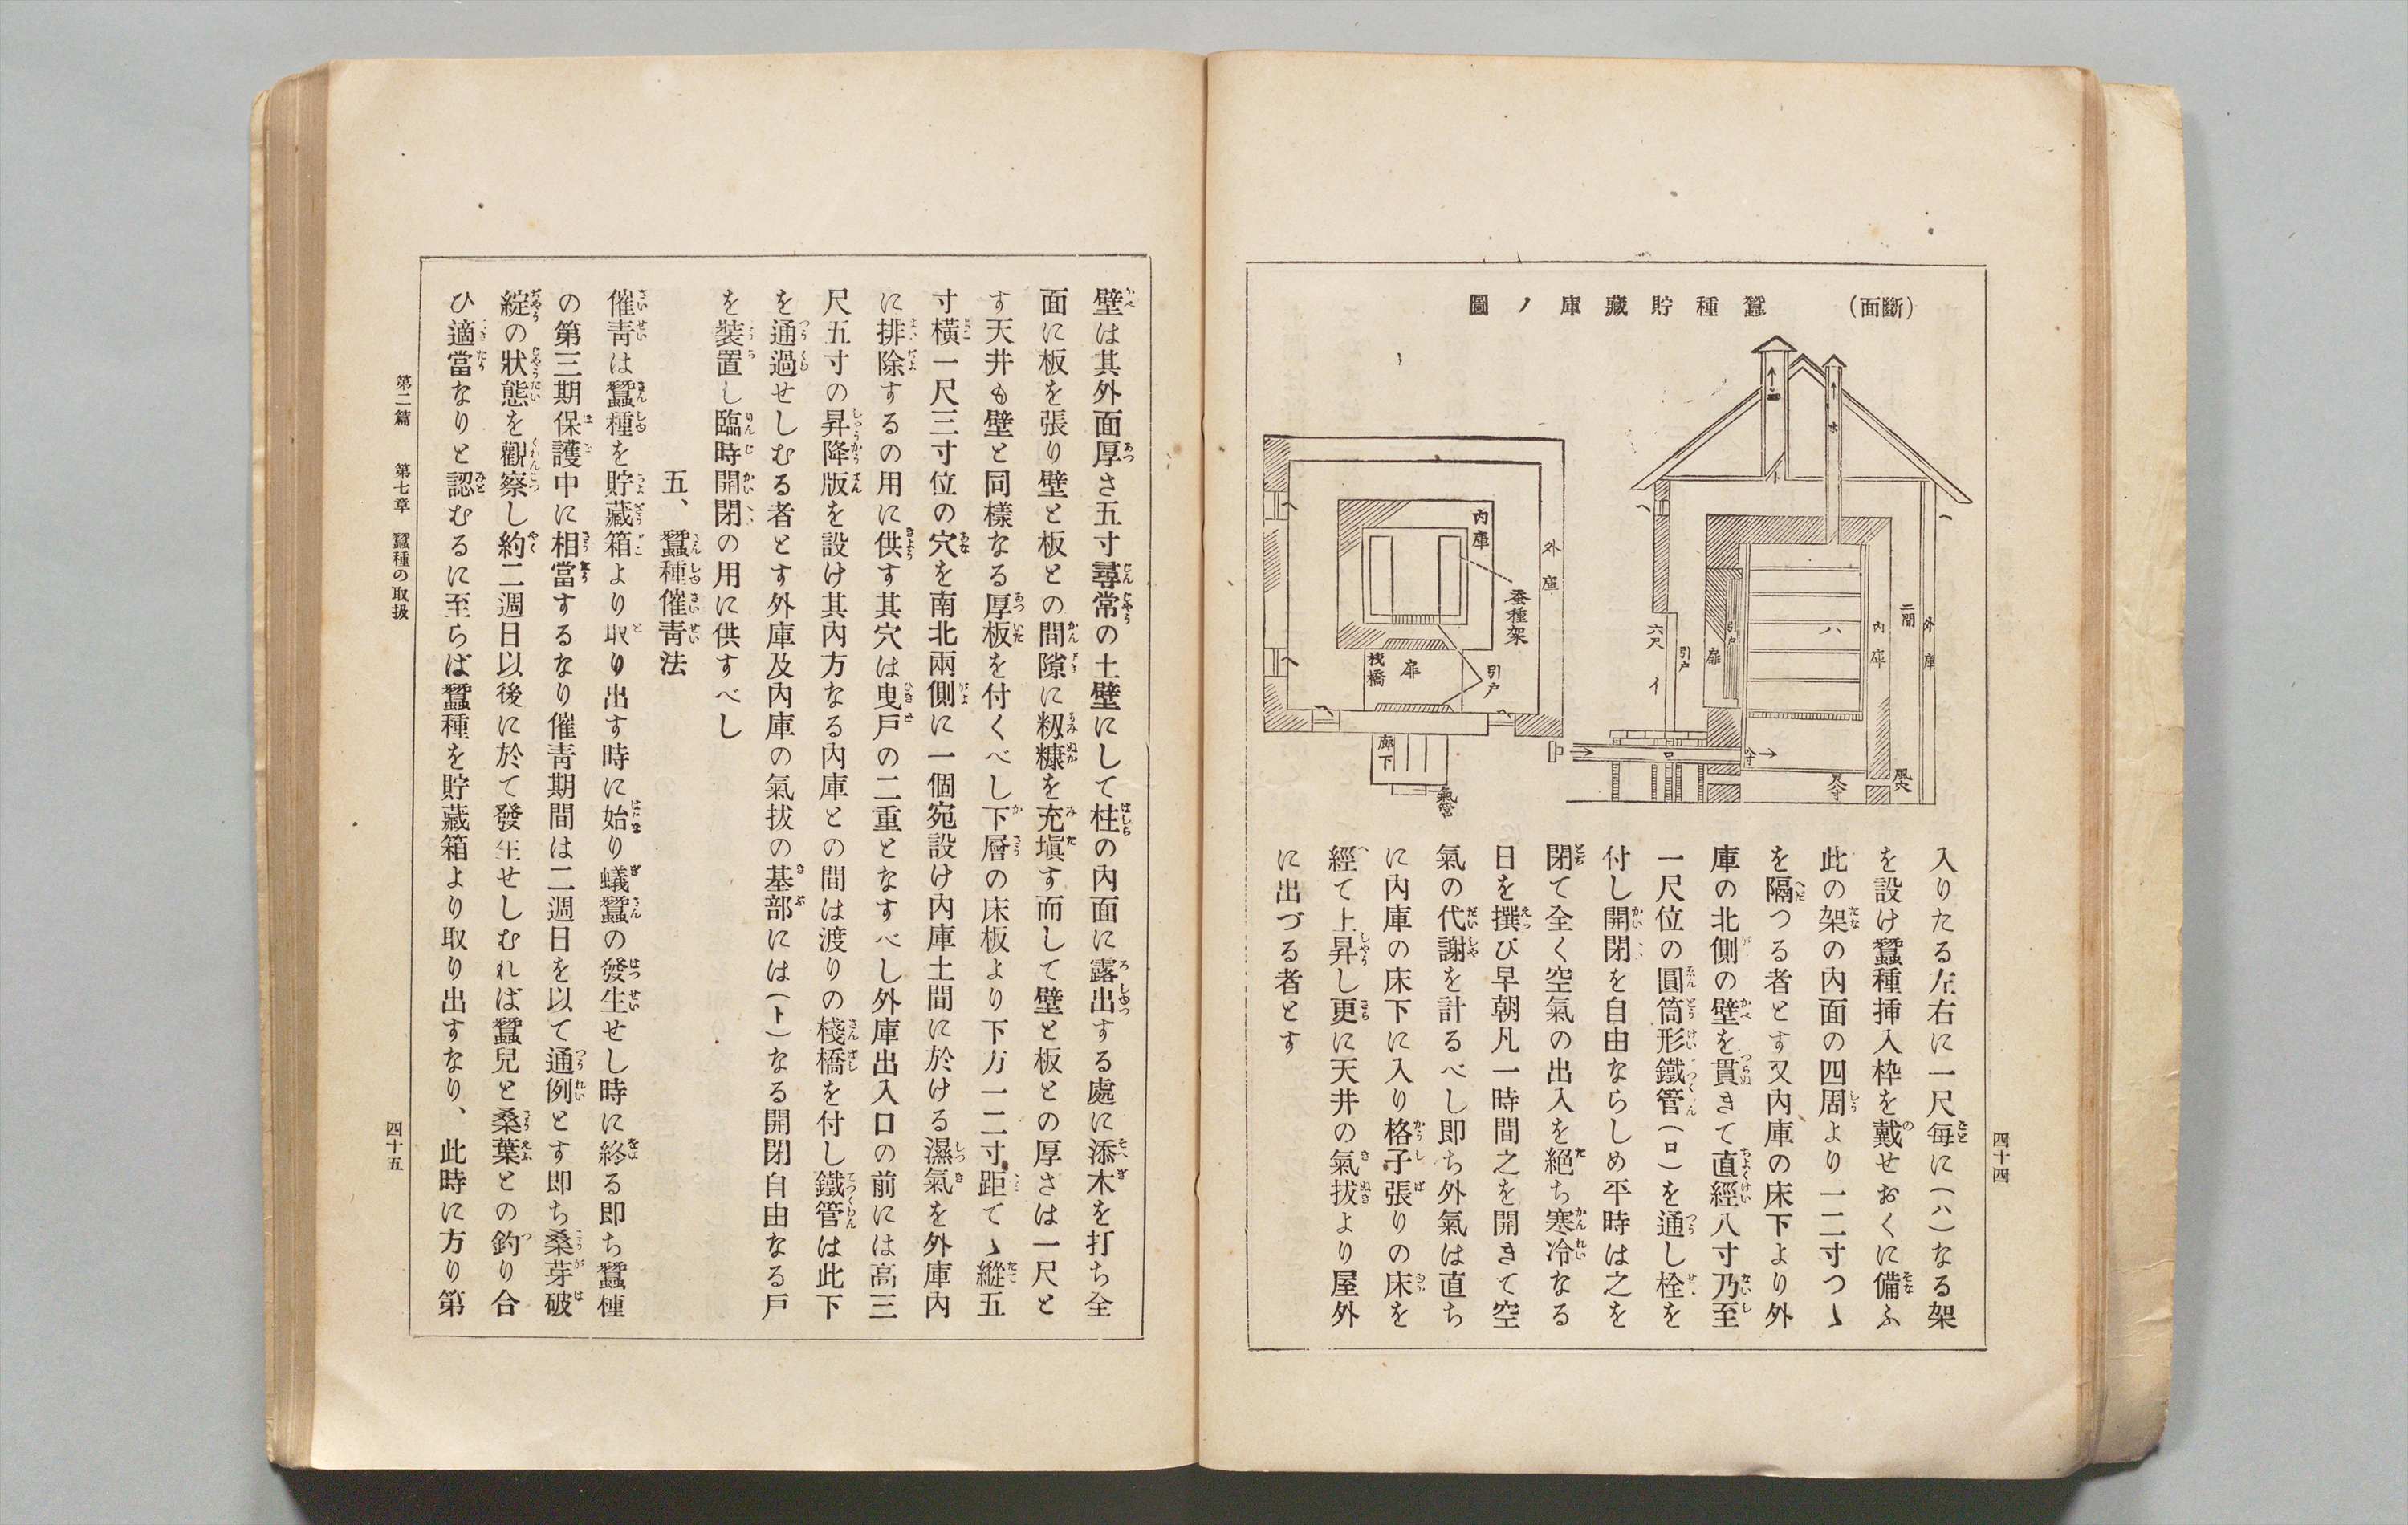 四十四
(斷面)
蠶種貯藏庫ノ圖
外庫
二間
內庫
ハ
風穴
引戶
扉
引戶
六尺
イ
ロ
ホ
ト
ヘ
ヘ
外庫
內庫
蚕種架
引戶
扉
桟橋
廊下
氣管
ヘ
ヘ
入りたる左右に一尺每に(ハ)なる架
を設け蠶種揷入枠を戴せおくに備ふ
此の架の內面の四周より一二寸つゝ
を隔つる者とす又內庫の床下より外
庫の北側の壁を貫きて直經八寸乃至
一尺位の圓筒形鐵管(ロ)を通し栓を
付し開閉を自由ならしめ平時は之を
閉て全く空氣の出入を絕ち寒冷なる
日を撰び早朝凡一時間之を開きて空
氣の代謝を計るべし卽ち外氣は直ち
に內庫の床下に入り格子張りの床を
經て上昇し更に天井の氣拔より屋外
に出づる者とす
壁は其外面厚さ五寸尋常の土壁にして柱の內面に露出する處に添木を打ち全
面に板を張り壁と板との間隙に籾糠を充塡す而して壁と板との厚さは一尺と
す天井も壁と同樣なる厚板を付くべし下層の床板より下方一二寸距てゝ縱五
寸橫一尺三寸位の穴を南北兩側に一個宛設け內庫土間に於ける濕氣を外庫內
に排除するの用に供す其穴は曳戶の二重となすべし外庫出入口の前には高三
尺五寸の昇降版を設け其內方なる內庫との間は渡りの棧橋を付し鐵管は此下
を通過せしむる者とす外庫及內庫の氣拔の基部には(ト)なる開閉自由なる戶
を裝置し臨時開閉の用に供すべし
五、蠶種催靑法
催靑は蠶種を貯藏箱より取り出す時に始り蟻蠶の發生せし時に終る卽ち蠶種
の第三期保護中に相當するなり催靑期間は二週日を以て通例とす卽ち桑芽破
綻の狀態を觀察し約二週日以後に於て發生せしむれば蠶兒と桑葉との釣り合
ひ適當なりと認むるに至らば蠶種を貯藏箱より取り出すなり、此時に方り第
第二篇 第七章 蠶種の取扱
四十五